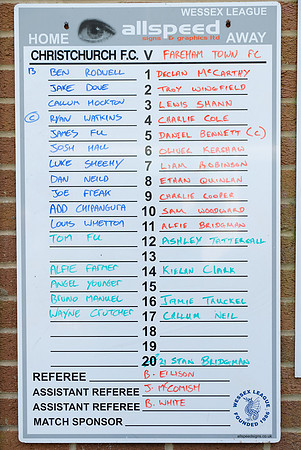 WESSEX LEAGUE
HOME allspeed AWAY
signs & graphics ltd
CHRISTCHURCH F.C. V FAREHAM TOWN FC
BEN RODUELL 1 DECLAN McCARTHY
JAKE DOVE 2 TROY WINGFIELD
CALLUM MOCKTON 3 LEWIS SHANN
(C) RYAN WATKINS 4 CHARLIE COLE
JAMES FU 5 DANIEL BENNETT (C)
JOSH HALL 6 OLIVER KERSHAW
LUKE SHEEHY 7 LIAM ROBINSON
DAN NEILD 8 ETHAN QUINLAN
JOE FREAK 9 CHARLIE COOPER
ADD CHIPANGURA 10 SAM WOODWARD
LOUIS WHETTON 11 ALFIE BRIDGMAN
TOM FU 12 ASHLEY TATTERSALL
13
ALFIE FARMER 14 KIERAN CLARK
ANGEL YOUNGER 15
BRUNO MANUEL 16 JAMIE TRUCKEL
WAYNE CRUTCHER 17 CALLUM NEIL
18
19
20 21 STAN BRIDGMAN
REFEREE B. ELLISON
ASSISTANT REFEREE J. McCOMISH
ASSISTANT REFEREE B. WHITE
MATCH SPONSOR
WESSEX LEAGUE
FOUNDED 1986
allspeedsigns.co.uk